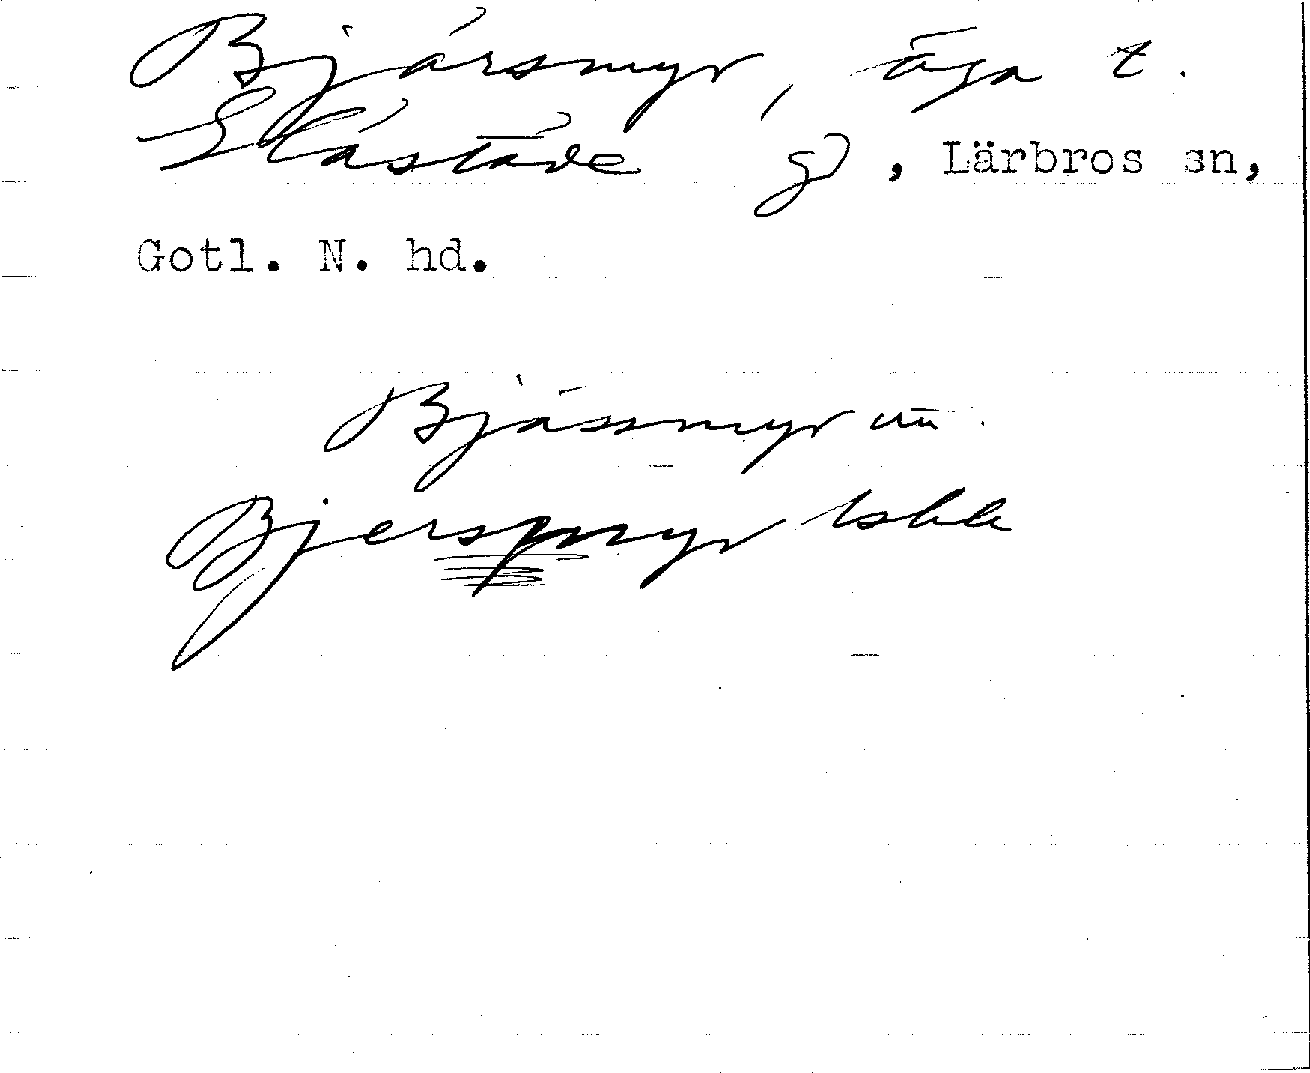 Bjärsmyr, äga t.
Glästäde g), Lärbros sn,
Gotl. N. hd.
Bjässmyr
Bjersmyr